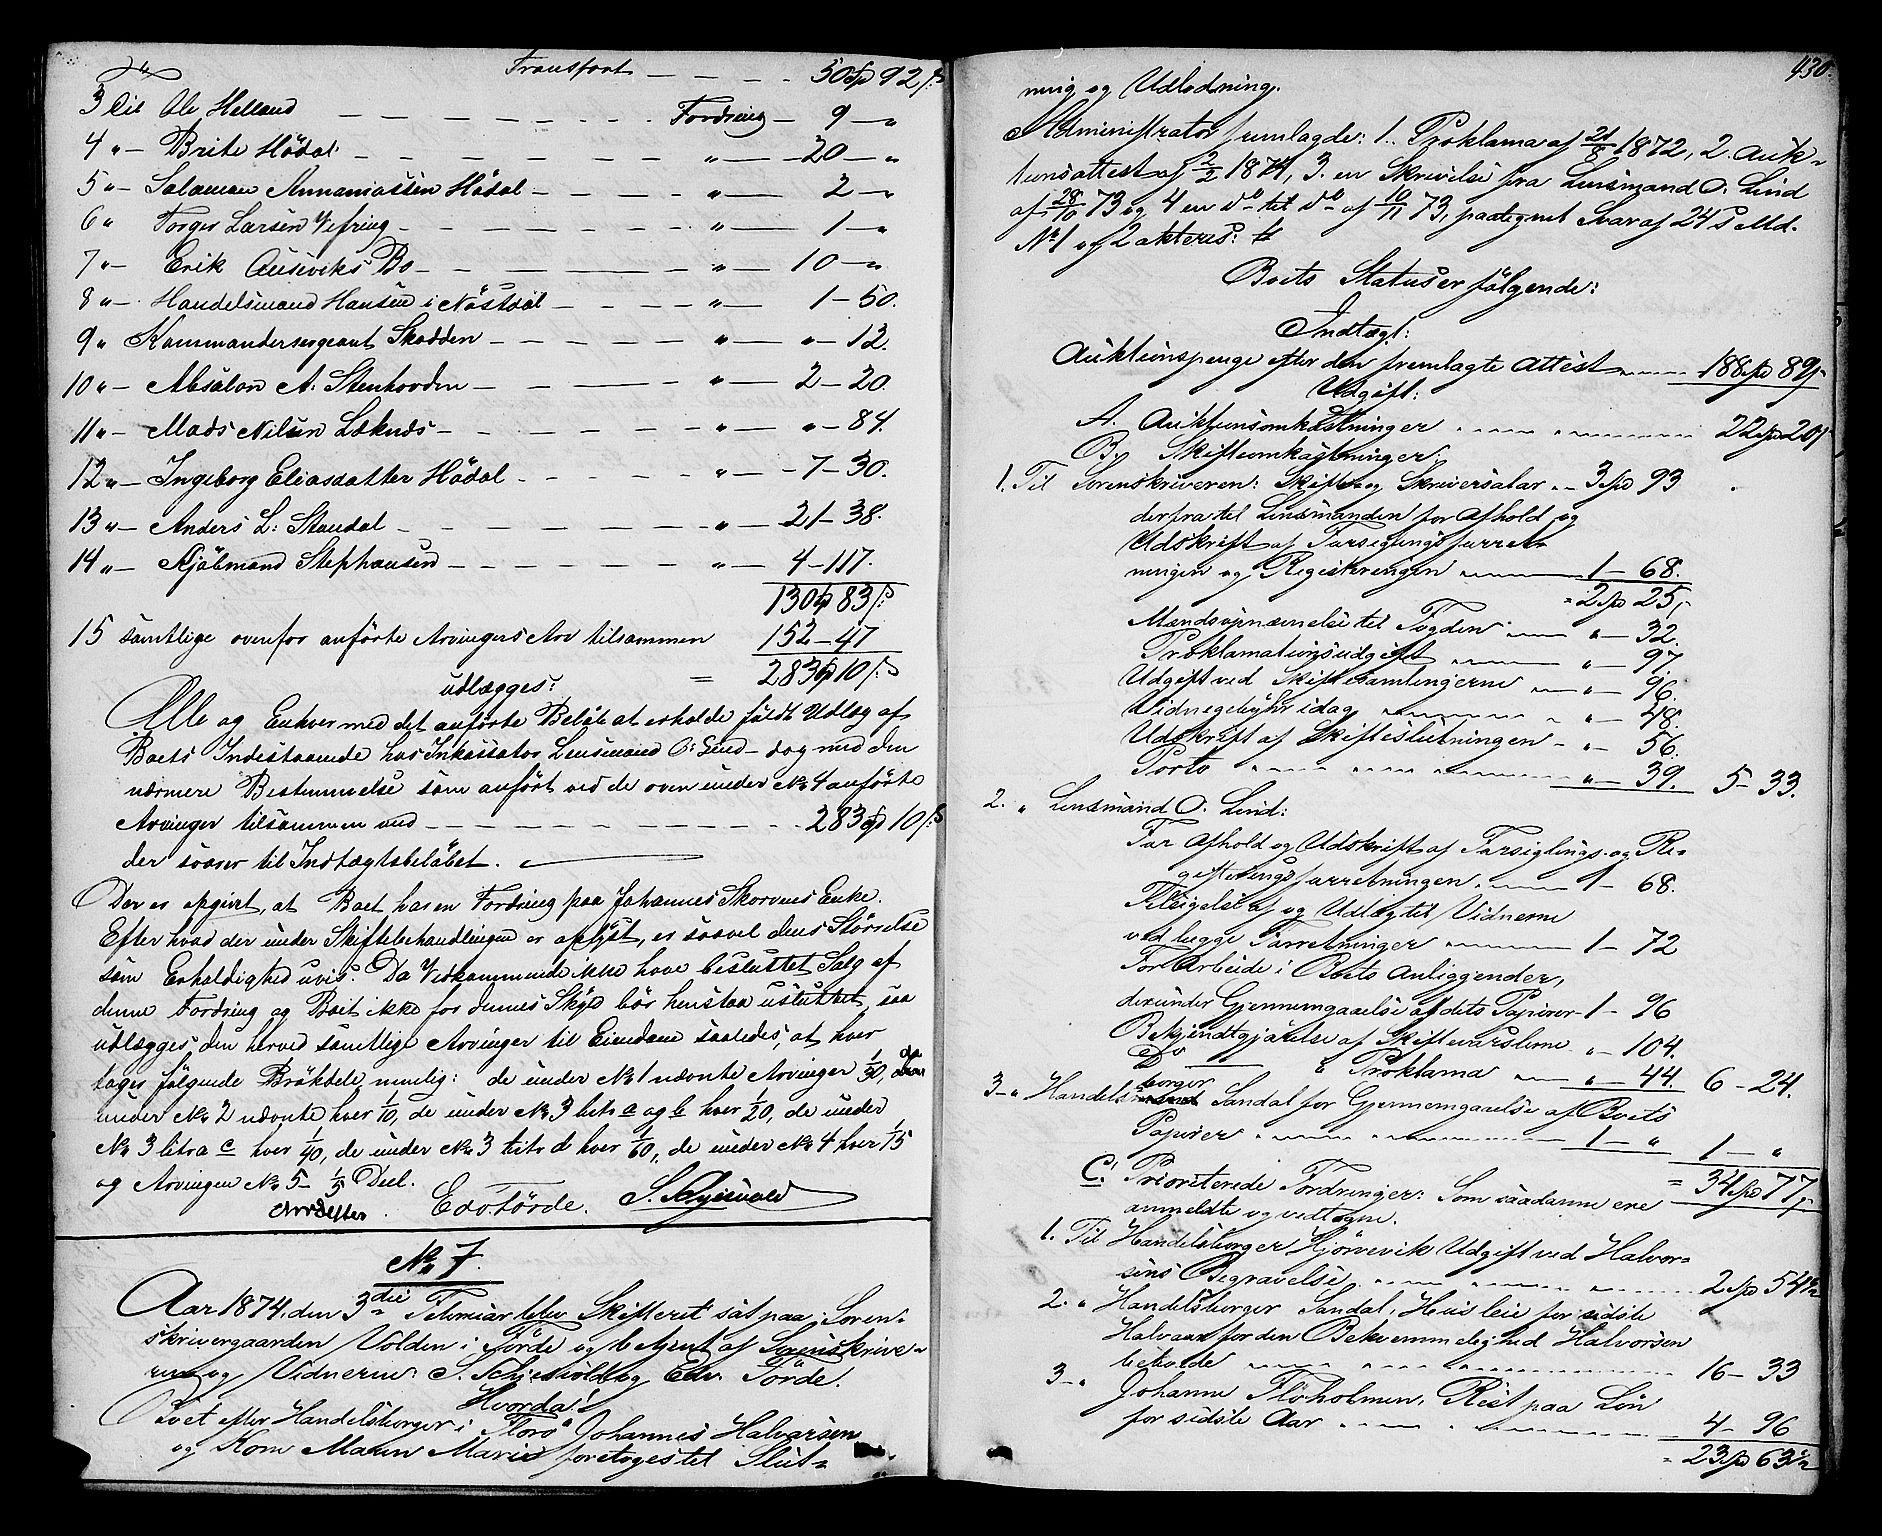 Transport — — — — 50 Spd 92 ß
3 Til Ole Helland — — — — Fordring — 9 — "
4 " — Brite Hödal — — — — " — 20 — "
5 " — Salamon Annaniassen Hödal — — " — 2 — "
6 " Torger Larsen Vefring — — — — " — 1 — "
7 " — Erik Auseviks Bo — — — — " — 10 — "
8 " — Handelsmand Hansen i Nöstdal — — " — 1 — 50.
9 " Kommandersergeant Skodden — — — " — " — 12.
10 " — Absalon A. Stenhovden — — — " — 2 — 20.
11 " — Mads Nilsen Löknæs — — — — " — " — 84.
12 " — Ingeborg Eliasdatter Hödal — — — " — 7 — 30.
13 " — Anders L: Standal — — — — " — 21 — 38.
14 " — Kjölmand Stephansen — — — — " — 4 — 117.
130 Spd 83 ß
15 samtlige ovenfor anförte Arvingers Arv tilsammen 152 — 47
= 283 Spd 10 ß
udlægges:
Alle og Enhver med det anförte Belöb at erholde fuldt Udlæg af
Boets Indestaaende hos Inkassator Lensmand O: Lind — dog med den
nærmere Bestemmelse som anfört ved de oven under No 4 anförte
Arvinger tilsammen med — — — — 283 Spd 10 ß
der svarer til Indtægtsbelöbet.
Der er opgivet, at Boet har en Fordring paa Johannes Skorvnes Enke.
Efter hvad der under Skiftebehandlingen er oplyst, er saavel dens Störrelse
som Erholdighed uvis. Da Vedkommende ikke have besluttet Salg af
denne Fordring og Boet ikke for dennes Skyld bör henstaa usluttet, saa
udlægges den herved samtlige Arvinger til Eiendom saaledes, at hver
tager fölgende Brökdele, nemlig: de under No 1 nævnte Arvinger 1/30, de
under No 2 nævnte hver 1/10, de under No 3 litra a og b hver 1/20, de under
No 3 litra c hver 1/40, de under No 3 litr d hver 1/60, de under No 4 hver 1/15
og Arvingen No 5 — 1/5 Deel.
Edv Förde. S.
No 7.
Aar 1874, den 3die Februar blev Skifteret sat paa Soren-
skrivergaarden Volden i Förde og betjent af Sorenskrive-
ren og Vidnerne: S. og Edv. Förde.
Hvorda:
Boet efter Handelsborger i Florö Johannes Halvorsen
og Kone Maren Marie foretoges til Slut-
430.
ning og Udlodning.
Administrator fremlagde: 1. Proklama af 21/8 1872, 2. Auk-
tionsattest af 2/2 1874, 3. en Skrivelse fra Lensmand O. Lind
af 28/10 73 og 4 en do til do af 10/11 73, paategnet Svar af 24 s Md.
No 1 og 2 akteres:
Boets Status er fölgende:
Indtægt:
Auktionspenge efter den fremlagte Attest — 188 Spd 89 ß
Udgift:
A. Auktionsomkostninger — 22 Spd 20 ß
B. Skifteomkostninger:
1. Til Sorenskriveren: Skifte og Skriversalær — 3 Spd 93
derfra til Lensmanden for Afhold og
Udskrift af Forseglingsforret-
ningen og Registreringen — 1 — 68.
= 2 Spd 25 ß
Mændsopnævnelse til Fogden — " — 32.
Proklamationsudgift — " — 97.
Udgift ved Skiftesamlingerne — " — 96.
Vidnegebyhr idag — " — 48.
Udskrift af Skifteslutningen — " — 56.
Porto — " — 39. 5 — 33.
2. " Lensmand O. Lind:
For Afhold og Udskrift af Forseglings- og Re-
gistreringsforretningen — 1 — 68.
Tilsigelse af og Udlæg til Vidnerne
ved begge Forretninger — 1 — 72
For Arbeide i Boets Anliggender,
derunder Gjennemgaaelse af dets Papirer — 1 — 96
Bekjendtgjörelse af Skiftevarslerne " — 104.
Do — " Proklama — " — 44. 6 — 24.
3 — " Handelsborger Sandal for Gjennemgaaelse af Boets
Papirer — 1 — " 1 — "
= 34 Spd 77 ß
C. Prioriterede Fordringer: Som saadanne ere
anmeldte og vedtagne.
1. Til Handelsborger Udgift ved Halvor-
sens Begravelse — 2 Spd 54 1/2
2. " Handelsborger Sandal, Husleie for sidste
Halvaar for den Bekvemmelighed Halvorsen
beboede — 16 — 33
3 — " Johanne Flöholmen, Rest paa Lön
for sidste Aar — 4 — 96
= 23 Spd 63 1/2